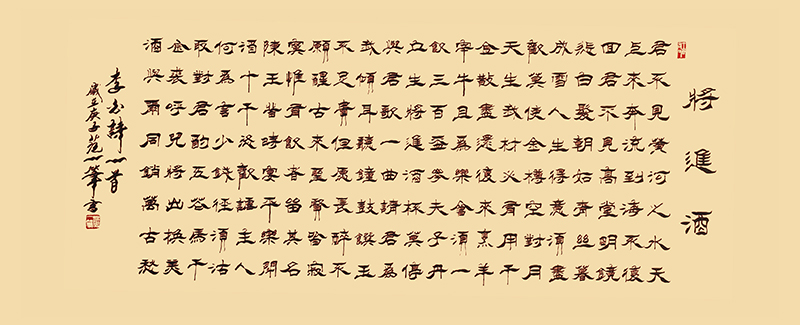 將進酒
君不見黃河之水天
上來奔流到海不復
回君不見高堂明鏡
悲白髮朝如青絲暮
成雪人生得意須盡
歡莫使金樽空對月
天生我材必有用千
金散盡還復來烹羊
宰牛且為樂會須一
飲三百盃岑夫子丹
丘生將進酒杯莫停
與君歌一曲請君為
我傾耳聽鐘鼓饌玉
不足貴但願長醉不
願醒古來聖賢皆寂
寞惟有飲者留其名
陳王昔時宴平樂鬥
酒十千恣歡謔主人
何為言少錢徑須沽
取對君酌五花馬千
金裘呼兒將出換美
酒與爾同銷萬古愁
李白詩一首
歲在庚子